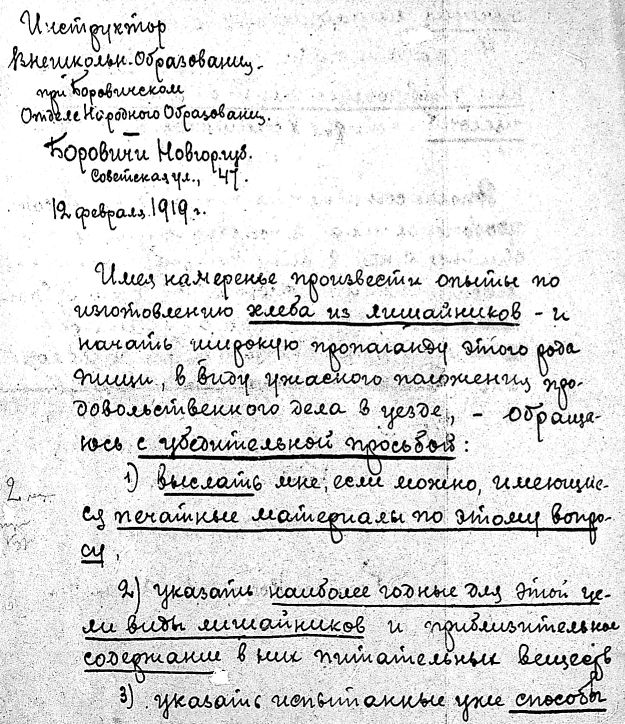 Инструктор
Внешкольн. Образования.
при Боровичском
Отделе Народного Образования.
Боровичи Новгор. губ.
Советская ул., 47.
12 февраля 1919 г.
Имея намеренье произвести опыты по
изготовлению хлеба из лишайников - и
начать широкую пропаганду этого рода
пищи, в виду ужасного положения про-
довольственного дела в уезде, - обраща-
юсь с убедительной просьбой:
1) выслать мне, если можно, имеющие-
ся печатные материалы по этому вопро-
су,
2) указать наиболее годные для этой це-
ли виды лишайников и приблизительное
содержание в них питательных веществ
3) указать испытанные уже способы